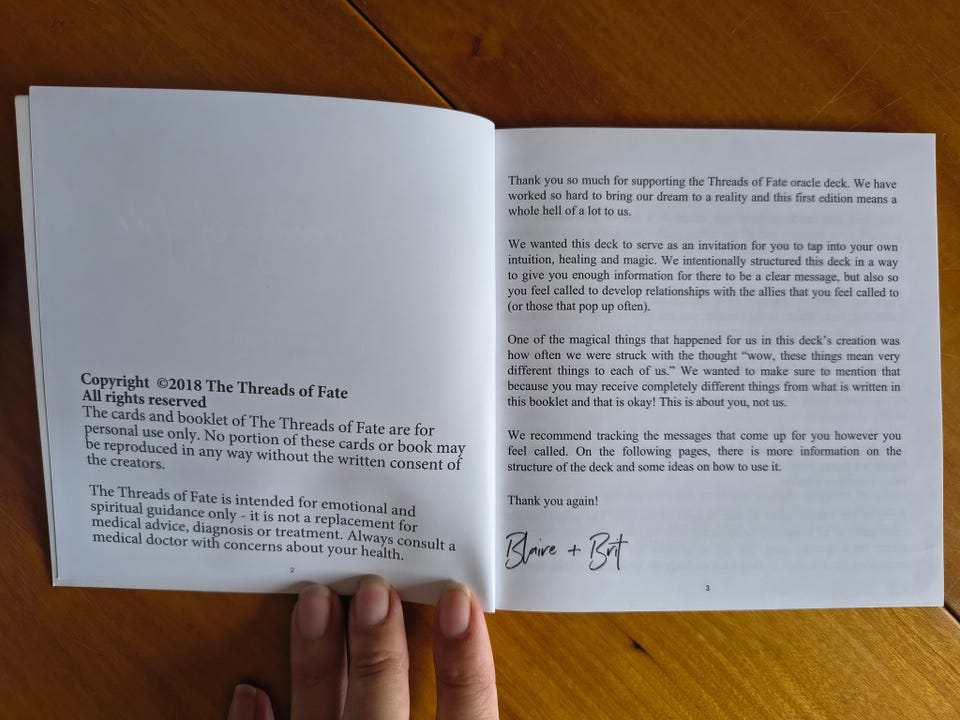 Copyright ©2018 The Threads of Fate
All rights reserved
The cards and booklet of The Threads of Fate are for
personal use only. No portion of these cards or book may
be reproduced in any way without the written consent of
the creators.
The Threads of Fate is intended for emotional and
spiritual guidance only - it is not a replacement for
medical advice, diagnosis or treatment. Always consult a
medical doctor with concerns about your health.
2
Thank you so much for supporting the Threads of Fate oracle deck. We have
worked so hard to bring our dream to a reality and this first edition means a
whole hell of a lot to us.
We wanted this deck to serve as an invitation for you to tap into your own
intuition, healing and magic. We intentionally structured this deck in a way
to give you enough information for there to be a clear message, but also so
you feel called to develop relationships with the allies that you feel called to
(or those that pop up often).
One of the magical things that happened for us in this deck's creation was
how often we were struck with the thought “wow, these things mean very
different things to each of us.” We wanted to make sure to mention that
because you may receive completely different things from what is written in
this booklet and that is okay! This is about you, not us.
We recommend tracking the messages that come up for you however you
feel called. On the following pages, there is more information on the
structure of the deck and some ideas on how to use it.
Thank you again!
Blaire + Brit
3